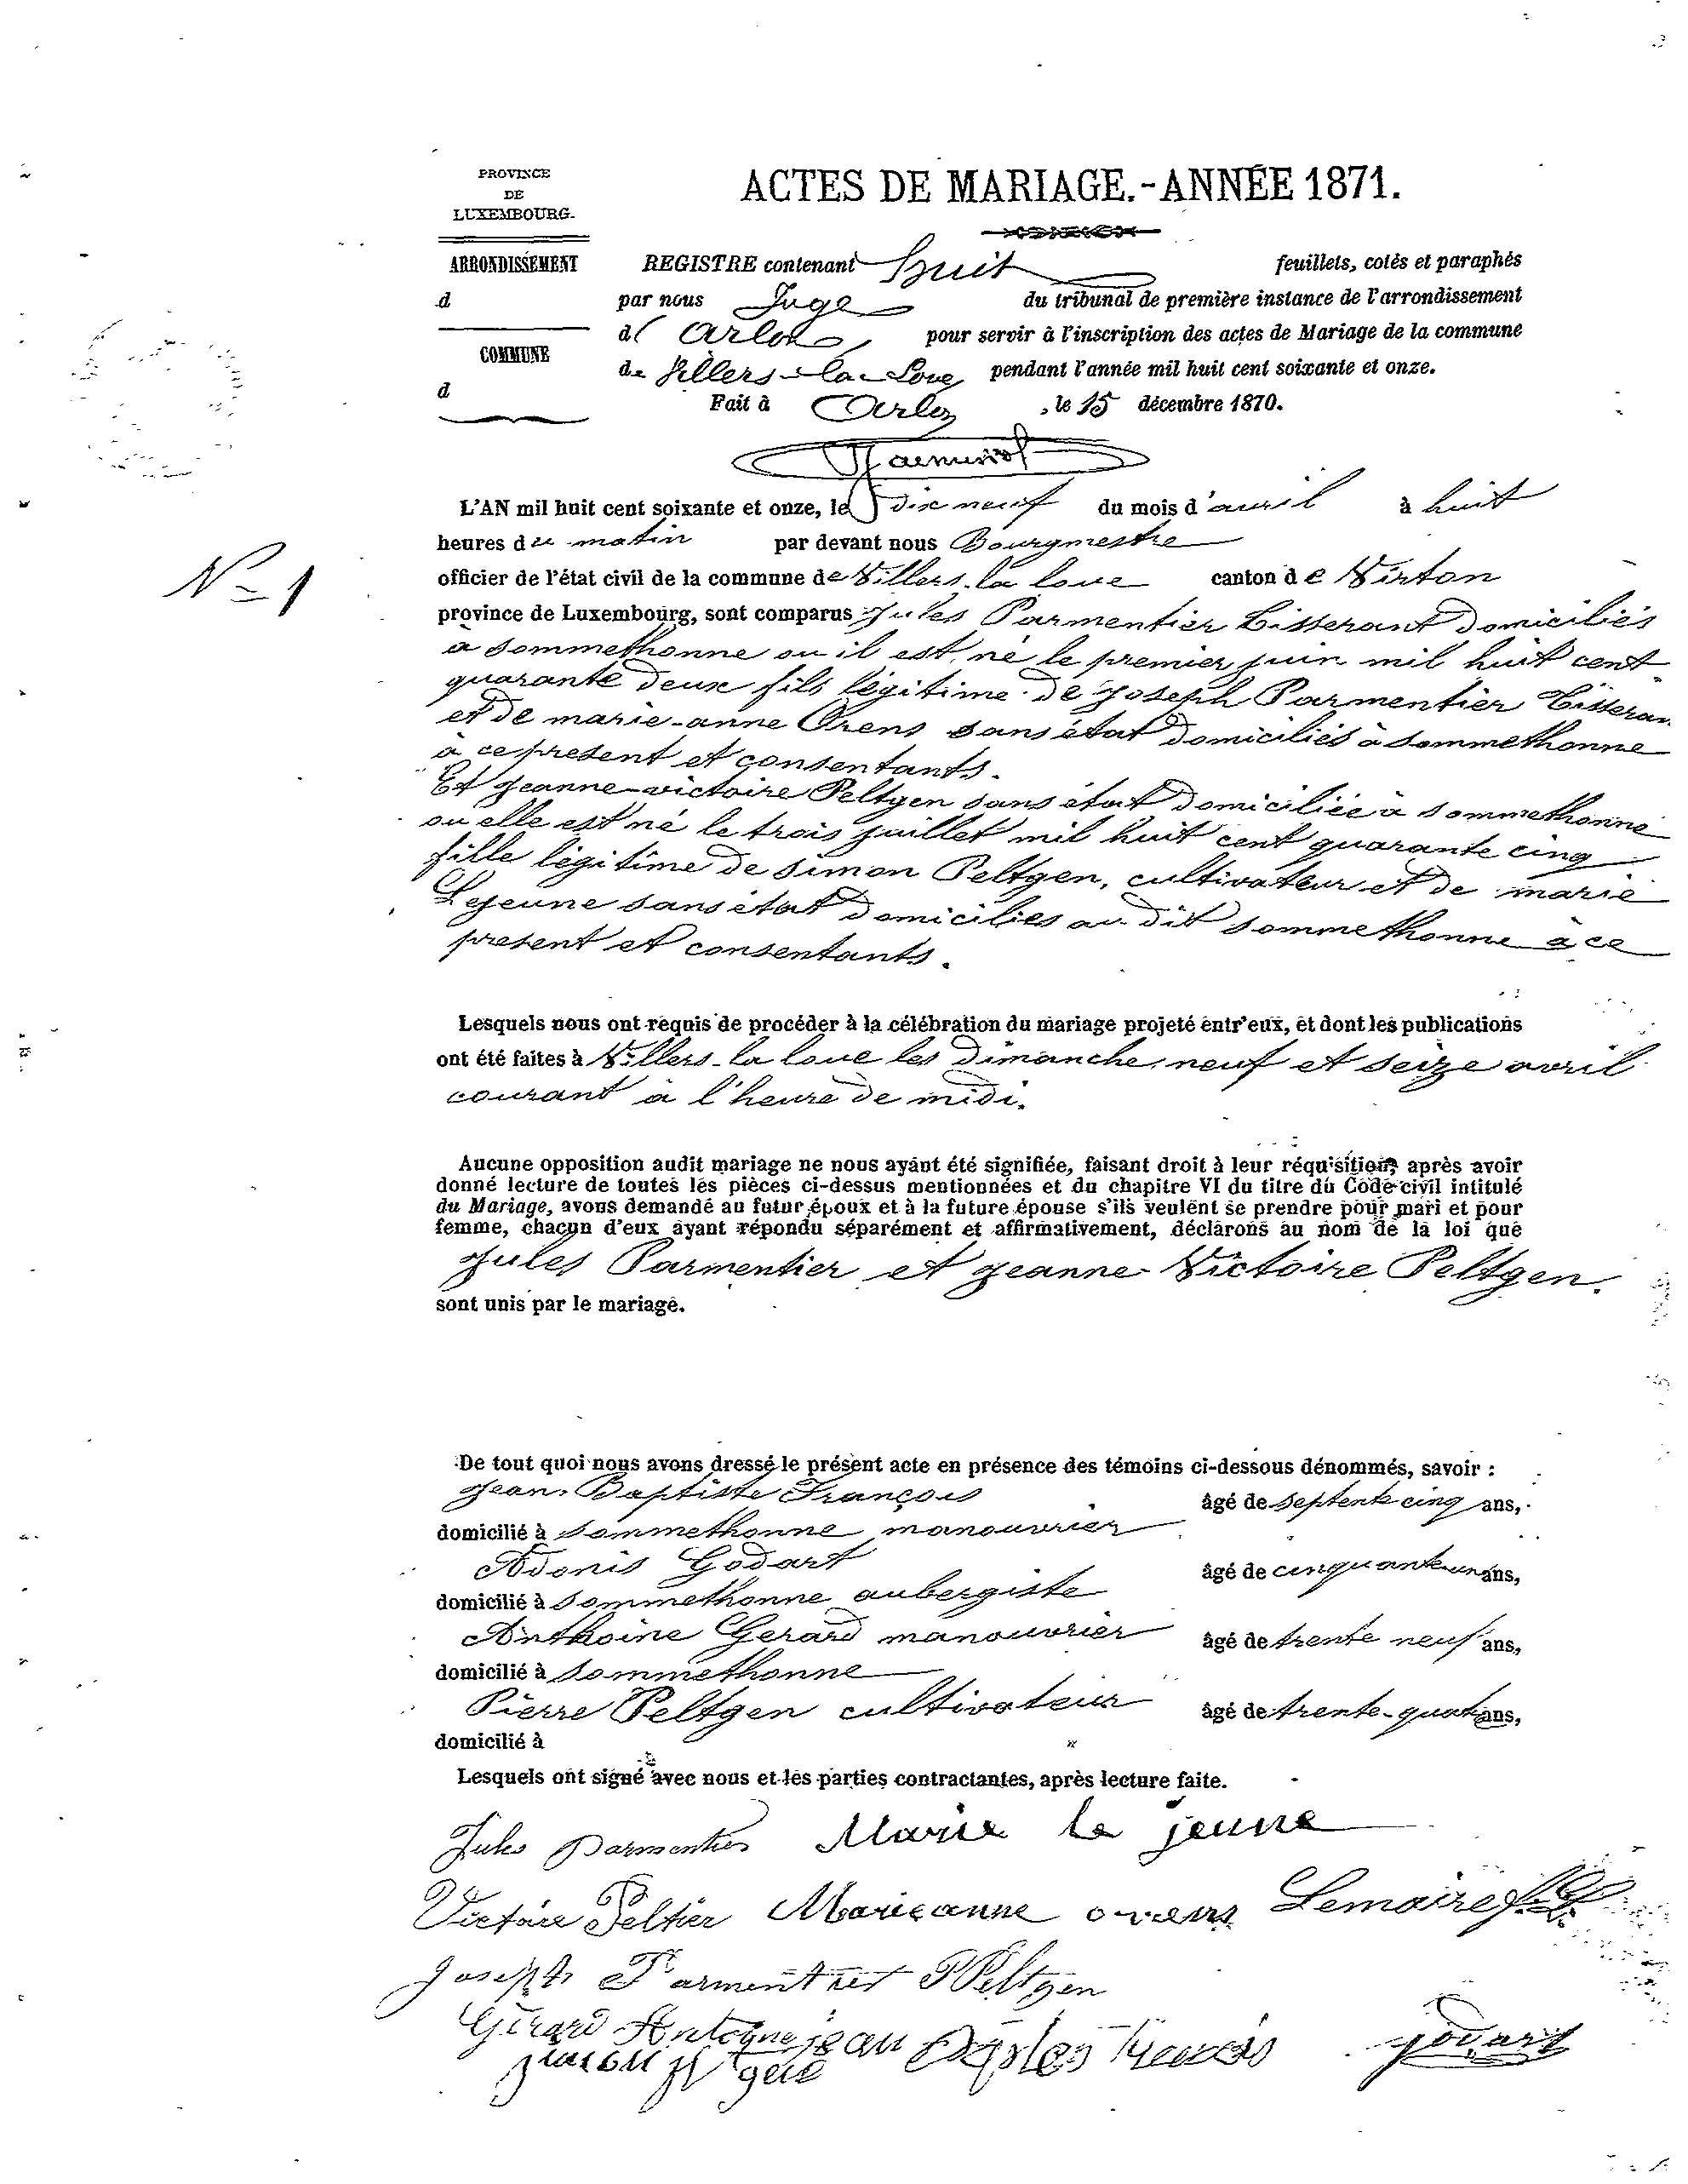 PROVINCE
DE
LUXEMBOURG.
ACTES DE MARIAGE.-ANNÉE 1871.
ARRONDISSEMENT
d
COMMUNE
d
REGISTRE contenant huit feuillets, cotés et paraphés
par nous Juge du tribunal de première instance de l'arrondissement
d' Arlon pour servir à l'inscription des actes de Mariage de la commune
de Villers-la-Loue pendant l'année mil huit cent soixante et onze.
Fait à Arlon, le 15 décembre 1870.
N=1
L'AN mil huit cent soixante et onze, le dix neuf du mois d'avril à huit
heures du matin par devant nous Bourgmestre
officier de l'état civil de la commune de Villers-la loue canton de Virton
province de Luxembourg, sont comparus Jules Parmentier Tisserant domiciliés
à sommethonne ou il est né le premier juin mil huit cent
quarante deux fils légitime de Joseph Parmentier Tisseran
et de marie-anne Orens sans état domiciliés à sommethonne
à ce present et consentants.
Et jeanne-victoire Peltgen sans état domiciliée à sommethonne
ou elle est né le trois juillet mil huit cent quarante cinq
fille légitime de simon Peltgen, cultivateur et de marie
Lejeune sans état domiciliés au dit sommethonne à ce
present et consentants.
Lesquels nous ont requis de procéder à la célébration du mariage projeté entr'eux, et dont les publications
ont été faites à Villers-la loue les dimanche neuf et seize avril
courant à l'heure de midi.
Aucune opposition audit mariage ne nous ayant été signifiée, faisant droit à leur réquisition, après avoir
donné lecture de toutes les pièces ci-dessus mentionnées et du chapitre VI du titre du Code civil intitulé
du Mariage, avons demandé au futur époux et à la future épouse s'ils veulent se prendre pour mari et pour
femme, chacun d'eux ayant répondu séparément et affirmativement, déclarons au nom de la loi que
Jules Parmentier et jeanne-Victoire Peltgen.
sont unis par le mariage.
De tout quoi nous avons dressé le présent acte en présence des témoins ci-dessous dénommés, savoir :
Jean-Baptiste François âgé de septente cinq ans,
domicilié à sommethonne manouvrier
Adonis Godart âgé de cinquante un ans,
domicilié à sommethonne aubergiste
Anthoine Gerard manouvrier âgé de trente neuf ans,
domicilié à sommethonne
Pierre Peltgen cultivateur âgé de trente-quatre ans,
domicilié à "
Lesquels ont signé avec nous et les parties contractantes, après lecture faite.
Jules Parmentier Marie le jeune
Victoire Peltier Marieanne orens Lemaire
Joseph Parmentier P Peltgen
Gérard Antoine jean godart